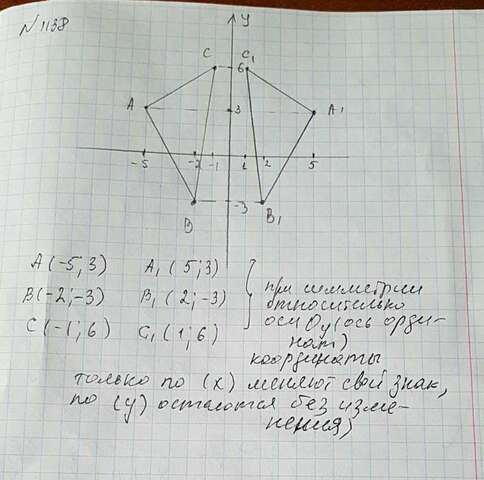 N 1138
y
C C₁
6
A 3 A₁
-5 -2 -1 1 2 5
B -3 B₁
A(-5;3) A₁(5;3)
B(-2;-3) B₁(2;-3)
C(-1;6) C₁(1;6)
при симметрии
относительно
оси Oy (ось орди-
нат)
координаты
только по (x) меняют свой знак,
по (y) остаются без изме-
нения)